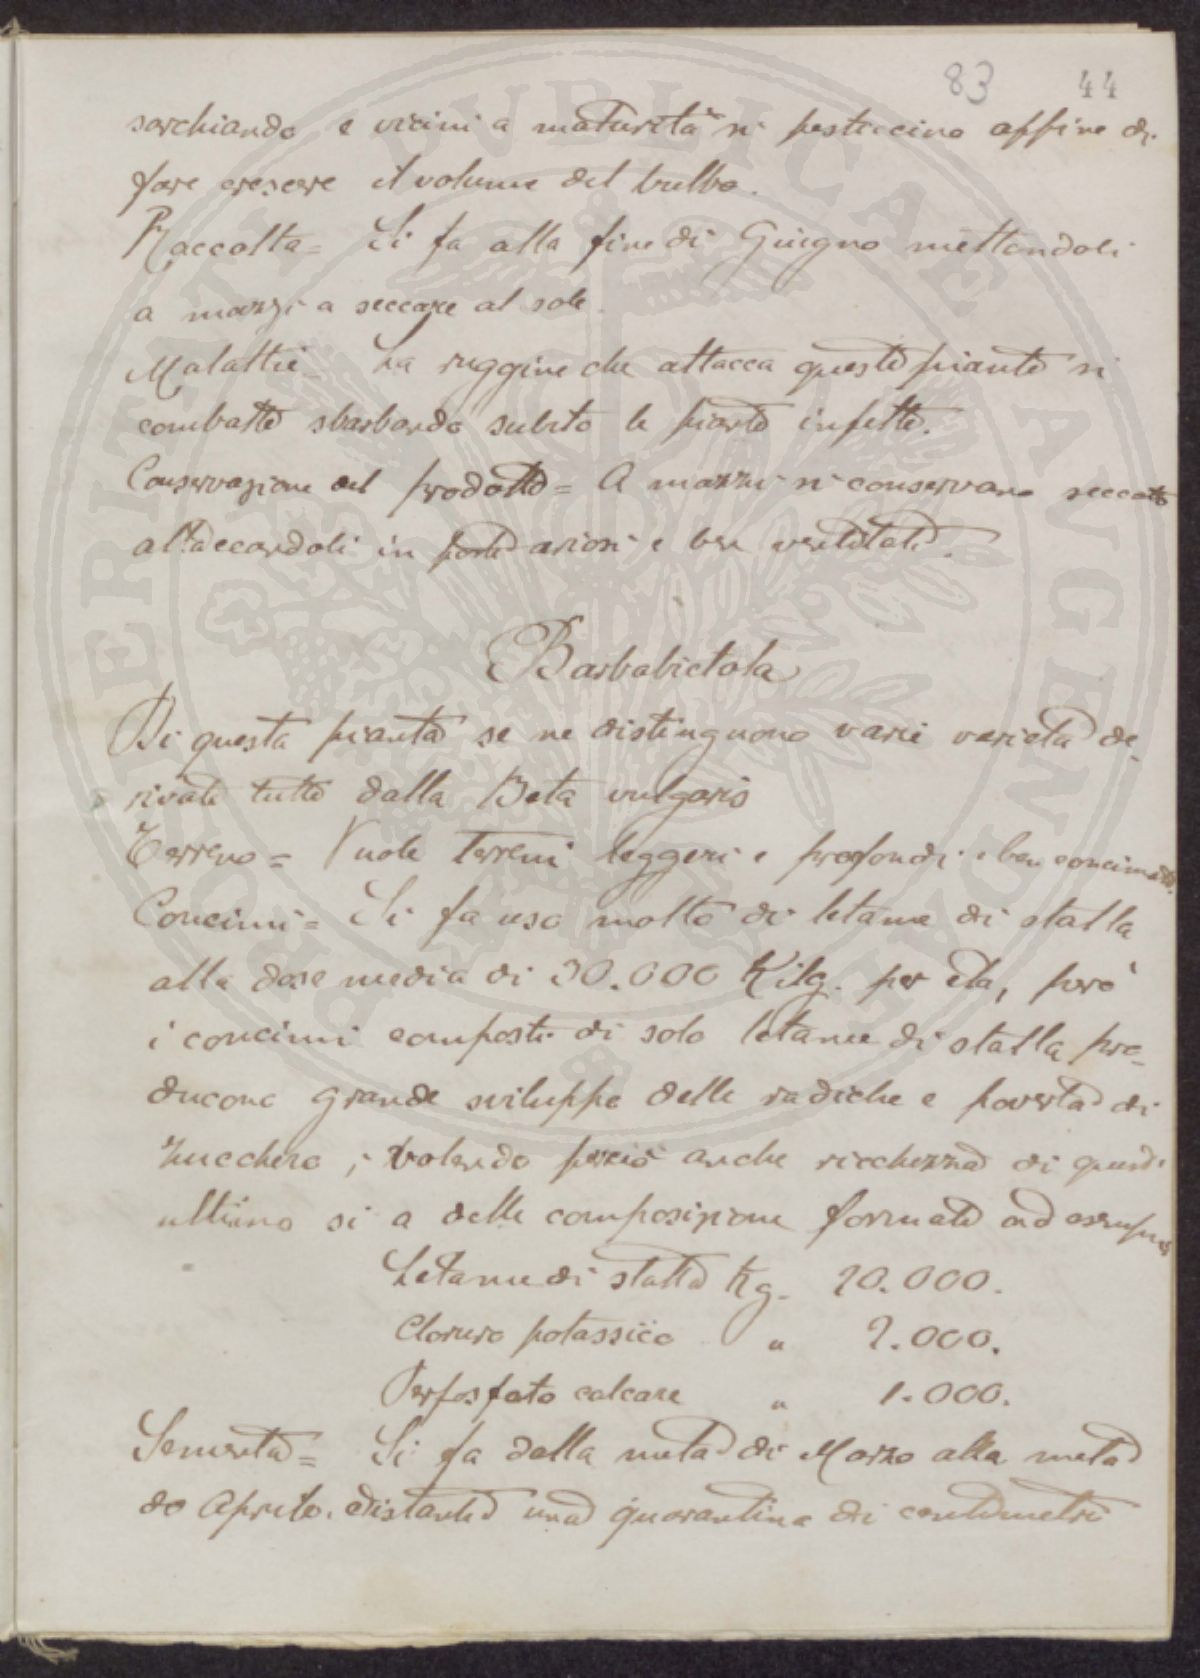 83 44
sarchiando e vicini a maturità si pesticcino affine di
fare crescere il volume del bulbo.
Raccolta = Si fa alla fine di Giugno mettendoli
a mazzi a seccare al sole.
Malattie = La ruggine che attacca queste piante si
combatte sbarbando subito le piante infette.
Conservazione del prodotto = A mazzi si conservano seccati
attaccandoli in posti ariosi e ben ventilati.
Barbabietola
Di questa pianta se ne distinguono varie varietà de-
rivate tutte dalla Beta vulgaris
Terreno = Vuole terreni leggeri e profondi e ben concimati.
Concimi = Si fa uso molto di letame di stalla
alla dose media di 30.000 Kilg. per eta, però
i concimi composti di solo letame di stalla pro-
ducono grande sviluppo delle radiche e povertà di
zucchero; volendo perciò anche ricchezza di quest'
ultimo si a delle composizione formate ad esempio
Letame di stalla Kg. 20.000.
Cloruro potassico " 2.000.
Perfosfato calcare " 1.000.
Sementa = Si fa dalla metà di Marzo alla metà
do Aprile. distante una quarantina di centimetri
PROSPERITATI PVBLICAE AVGENDAE